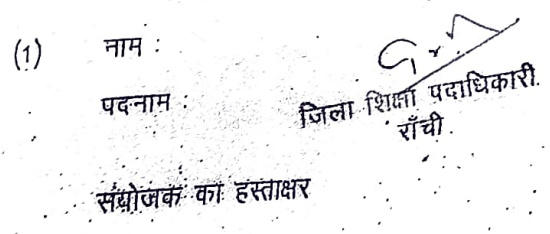 (1) नाम :
पदनाम :
जिला शिक्षा पदाधिकारी.
राँची.
संयोजक का हस्ताक्षर